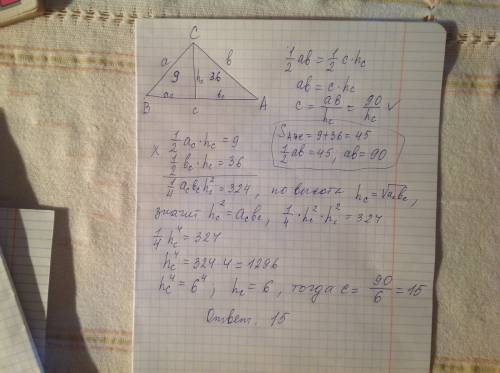 C
a b
9 h_c 36
B a_c c b_c A
1/2 ab = 1/2 c · h_c
ab = c · h_c
c = ab/h_c = 90/h_c ✓
S_ABC = 9+36 = 45
1/2 ab = 45, ab = 90
× 1/2 a_c · h_c = 9
1/2 b_c · h_c = 36
1/4 a_c b_c h_c² = 324, но высота h_c = √a_c b_c,
значит h_c² = a_c b_c, 1/4 · h_c² · h_c² = 324
1/4 h_c⁴ = 324
h_c⁴ = 324·4 = 1296
h_c⁴ = 6⁴; h_c = 6, тогда c = 90/6 = 15
Ответ. 15